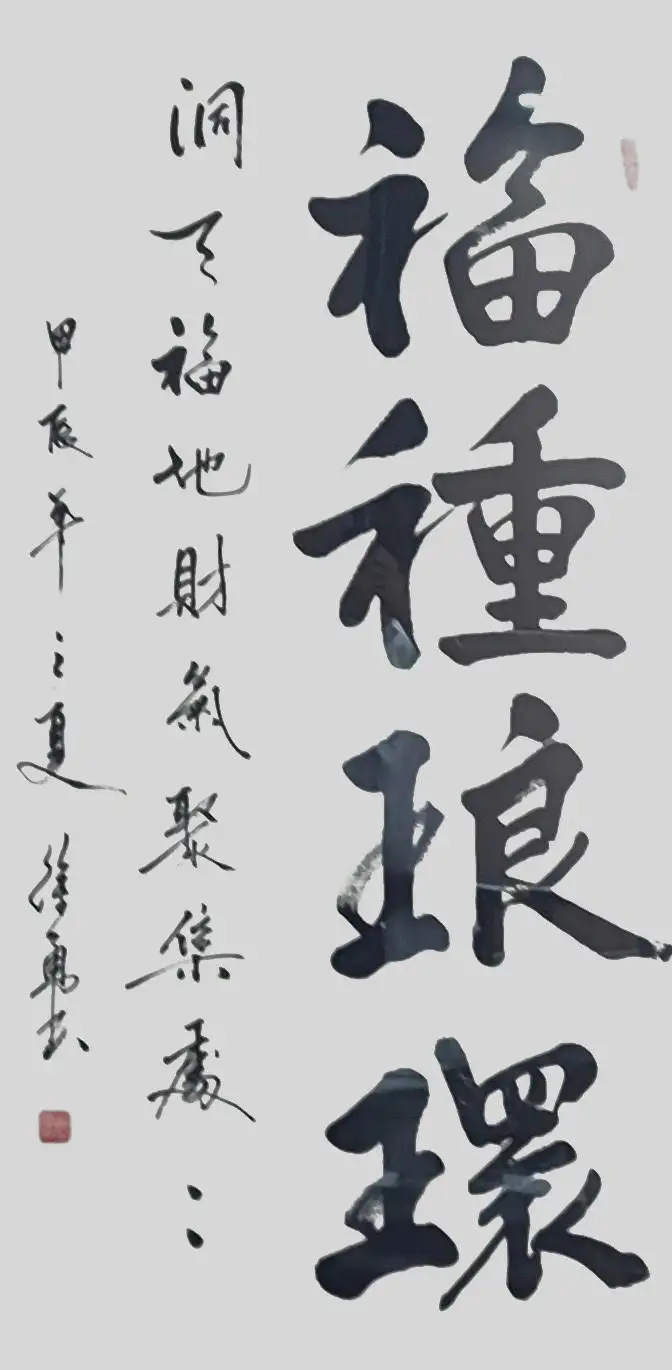 福種琅環
洞天福地財氣聚集處：
甲辰年之夏 徐勇书